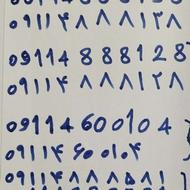 ۰۹۱۱۴۸۸۸۱۲۸
09114 888128
۰۹۱۱۴ ۸۸۸۱۲۸
09114600104
۰۹۱۱۴۶۰۰۱۰۴